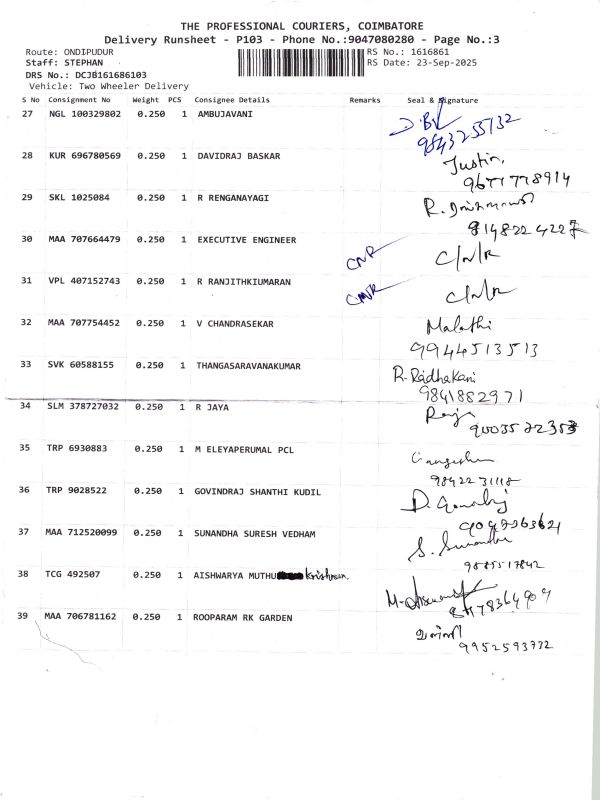 THE PROFESSIONAL COURIERS, COIMBATORE
Delivery Runsheet - P103 - Phone No.:9047080280 - Page No.:3
Route: ONDIPUDUR RS No.: 1616861
Staff: STEPHAN RS Date: 23-Sep-2025
DRS No.: DCJB161686103
Vehicle: Two Wheeler Delivery
S No Consignment No Weight PCS Consignee Details Remarks Seal & Signature
27 NGL 100329802 0.250 1 AMBUJAVANI
9843255732
28 KUR 696780569 0.250 1 DAVIDRAJ BASKAR Justin,
9677778914
29 SKL 1025084 0.250 1 R RENGANAYAGI R.
9148224227
30 MAA 707664479 0.250 1 EXECUTIVE ENGINEER CNR C/N/R
31 VPL 407152743 0.250 1 R RANJITHKIUMARAN CNR C/N/R
32 MAA 707754452 0.250 1 V CHANDRASEKAR Malathi
9944513513
33 SVK 60588155 0.250 1 THANGASARAVANAKUMAR R. Radhakani
9841882971
34 SLM 378727032 0.250 1 R JAYA Raja
35 TRP 6930883 0.250 1 M ELEYAPERUMAL PCL
9842231118
36 TRP 9028522 0.250 1 GOVINDRAJ SHANTHI KUDIL D.
37 MAA 712520099 0.250 1 SUNANDHA SURESH VEDHAM S. Sunandha
38 TCG 492507 0.250 1 AISHWARYA MUTHU Krishnan.
39 MAA 706781162 0.250 1 ROOPARAM RK GARDEN
9952593772